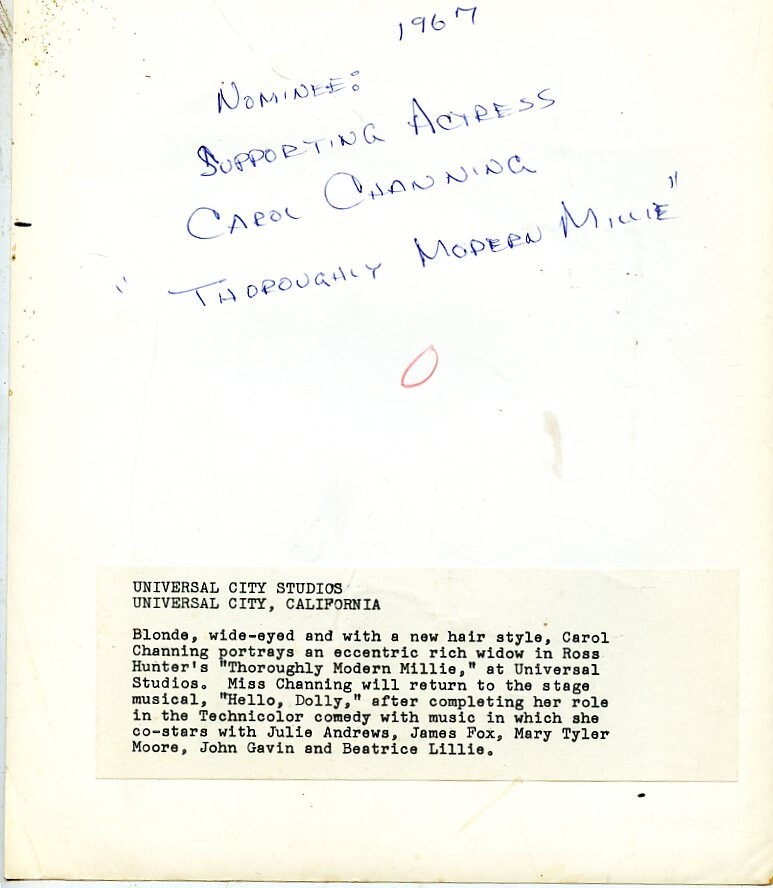 1967
NOMINEE:
SUPPORTING ACTRESS
CAROL CHANNING
"THOROUGHLY MODERN MILLIE"
UNIVERSAL CITY STUDIOS
UNIVERSAL CITY, CALIFORNIA
Blonde, wide-eyed and with a new hair style, Carol
Channing portrays an eccentric rich widow in Ross
Hunter's "Thoroughly Modern Millie," at Universal
Studios. Miss Channing will return to the stage
musical, "Hello, Dolly," after completing her role
in the Technicolor comedy with music in which she
co-stars with Julie Andrews, James Fox, Mary Tyler
Moore, John Gavin and Beatrice Lillie.